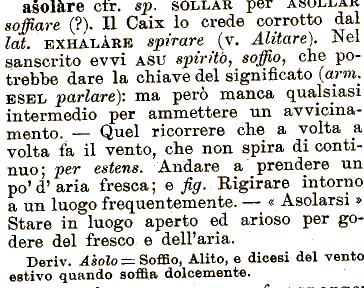 aṡolàre cfr. sp. SOLLAR per ASOLLAR
soffiare (?). Il Caix lo crede corrotto dal
lat. EXHALÀRE spirare (v. Alitare). Nel
sanscrito evvi ASU spirito, soffio, che po-
trebbe dare la chiave del significato (arm.
ESEL parlare): ma però manca qualsiasi
intermedio per ammettere un avvicina-
mento. — Quel ricorrere che a volta a
volta fa il vento, che non spira di conti-
nuo; per estens. Andare a prendere un
po' d'aria fresca; e fig. Rigirare intorno
a un luogo frequentemente. — « Asolarsi »
Stare in luogo aperto ed arioso per go-
dere del fresco e dell'aria.
Deriv. Aṡolo = Soffio, Alito, e dicesi del vento
estivo quando soffia dolcemente.